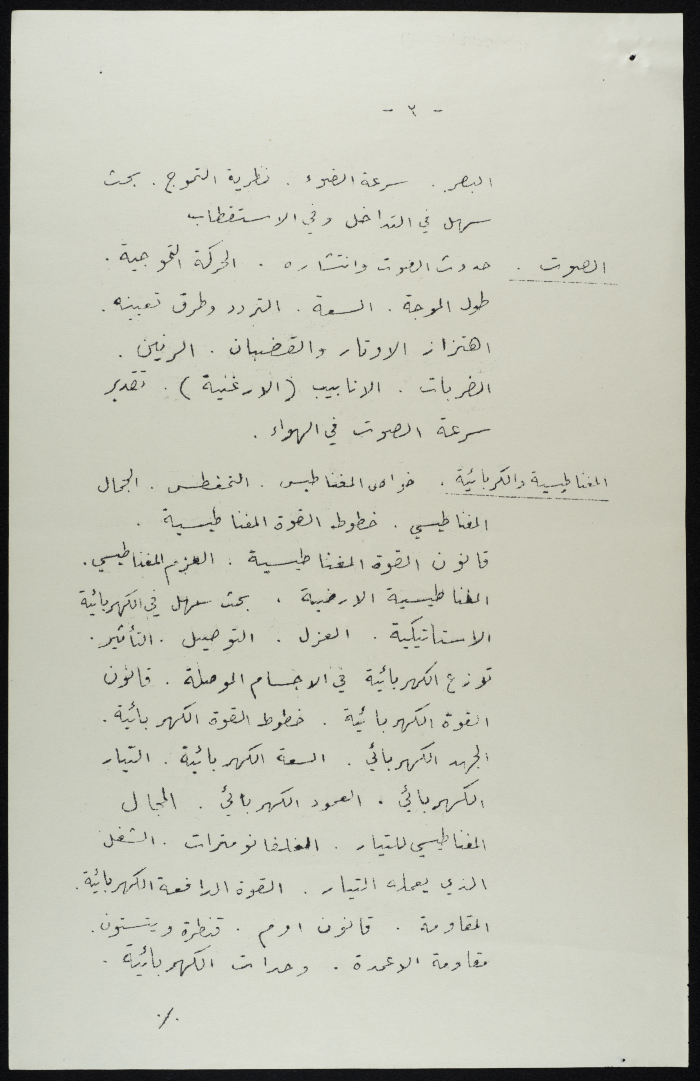 - ٢ -
البصر . سرعة الضوء . نظرية التموج . بحث
سهل في التداخل وفي الاستقطاب
الصوت . حدوث الصوت وانتشاره . الحركة التموجية .
طول الموجة . السعة . التردد وطرق تعيينه .
اهتزاز الاوتار والقضبان . الرنين .
الضربات . الانابيب (الارغنية) . تقدير
سرعة الصوت في الهواء .
المغناطيسية والكربائية . خواص المغناطيس . التمغطس . المجال
المغناطيسي . خطوط القوة المغناطيسية .
قانون القوة المغناطيسية . العزم المغناطيسي .
المغناطيسية الارضية . بحث سهل في الكهربائية
الاستاتيكية . العزل . التوصيل . التأثير .
توزع الكهربائية في الاجسام الموصلة . قانون
القوة الكهربائية . خطوط القوة الكهربائية .
الجهد الكهربائي . السعة الكهربائية . التيار
الكهربائي . العمود الكهربائي . المجال
المغناطيسي للتيار . الغلفانومترات . الشغل
الذي يعمله التيار . القوة الدافعة الكهربائية .
المقاومة . قانون اوم . قنطرة ويتستون .
مقاومة الاعمدة . وحدات الكهربائية .
./.